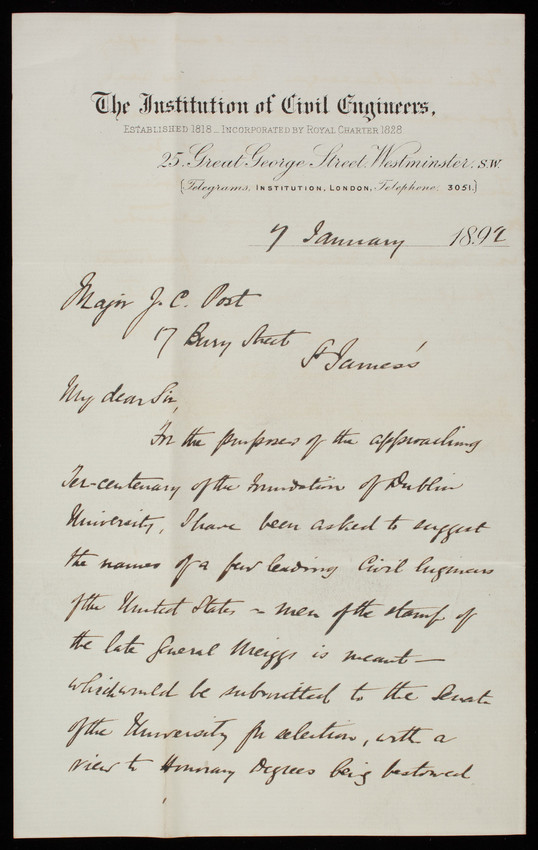 The Institution of Civil Engineers,
ESTABLISHED 1818 _ INCORPORATED BY ROYAL CHARTER 1828
25, Great George Street, Westminster, S.W.
(Telegrams, INSTITUTION, LONDON, Telephone, 3051.)
7 January 1892
Major J. C. Post
17 Bury Street
St James's
My dear Sir,
For the purposes of the approaching
Ter-centenary of the Foundation of Dublin
University, I have been asked to suggest
the names of a few leading Civil Engineers
of the United States – men of the stamp of
the late General Meiggs is meant —
which would be submitted to the Senate
of the University for selection, with a
view to Honorary Degrees being bestowed